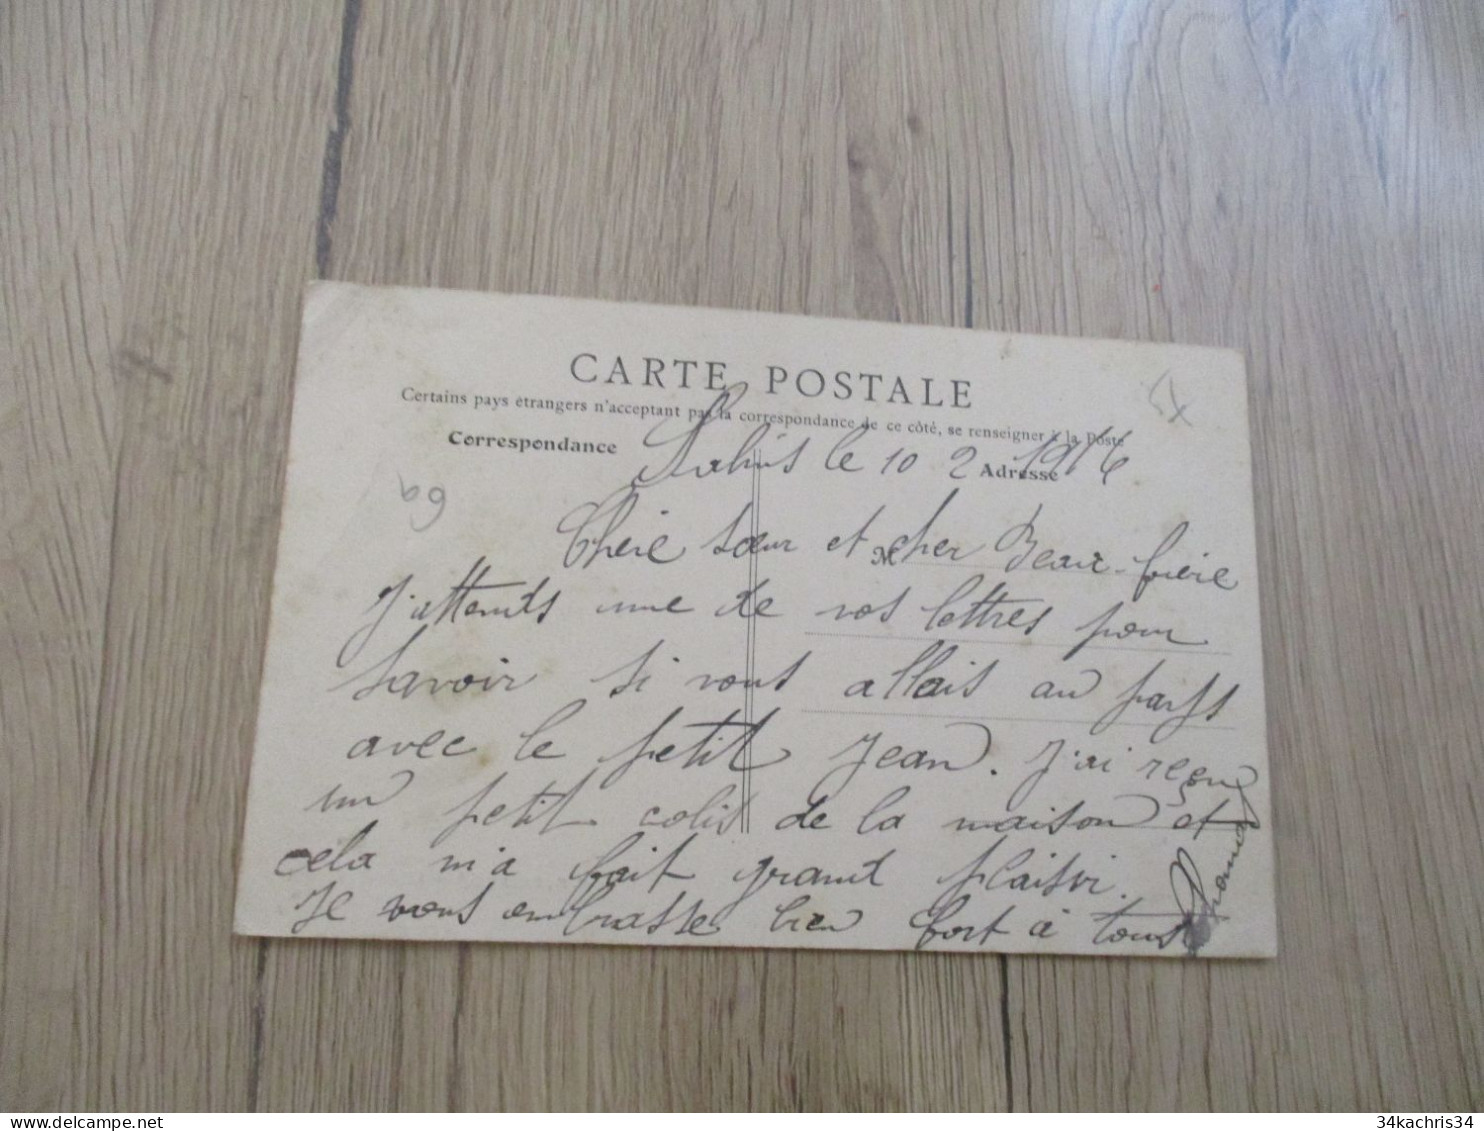 CARTE POSTALE
Certains pays étrangers n'acceptant pas la correspondance de ce côté, se renseigner à la Poste
Correspondance
Adresse
le 10 2 1916
69
Chère sœur et cher Beau-frère
M
J'attends une de vos lettres pour
savoir si vous allais au pays
avec le petit Jean. J'ai reçu
un petit colis de la maison et
cela m'a fait grand plaisir.
Je vous embrasse bien fort à tous
delcampe.net
34kachris34